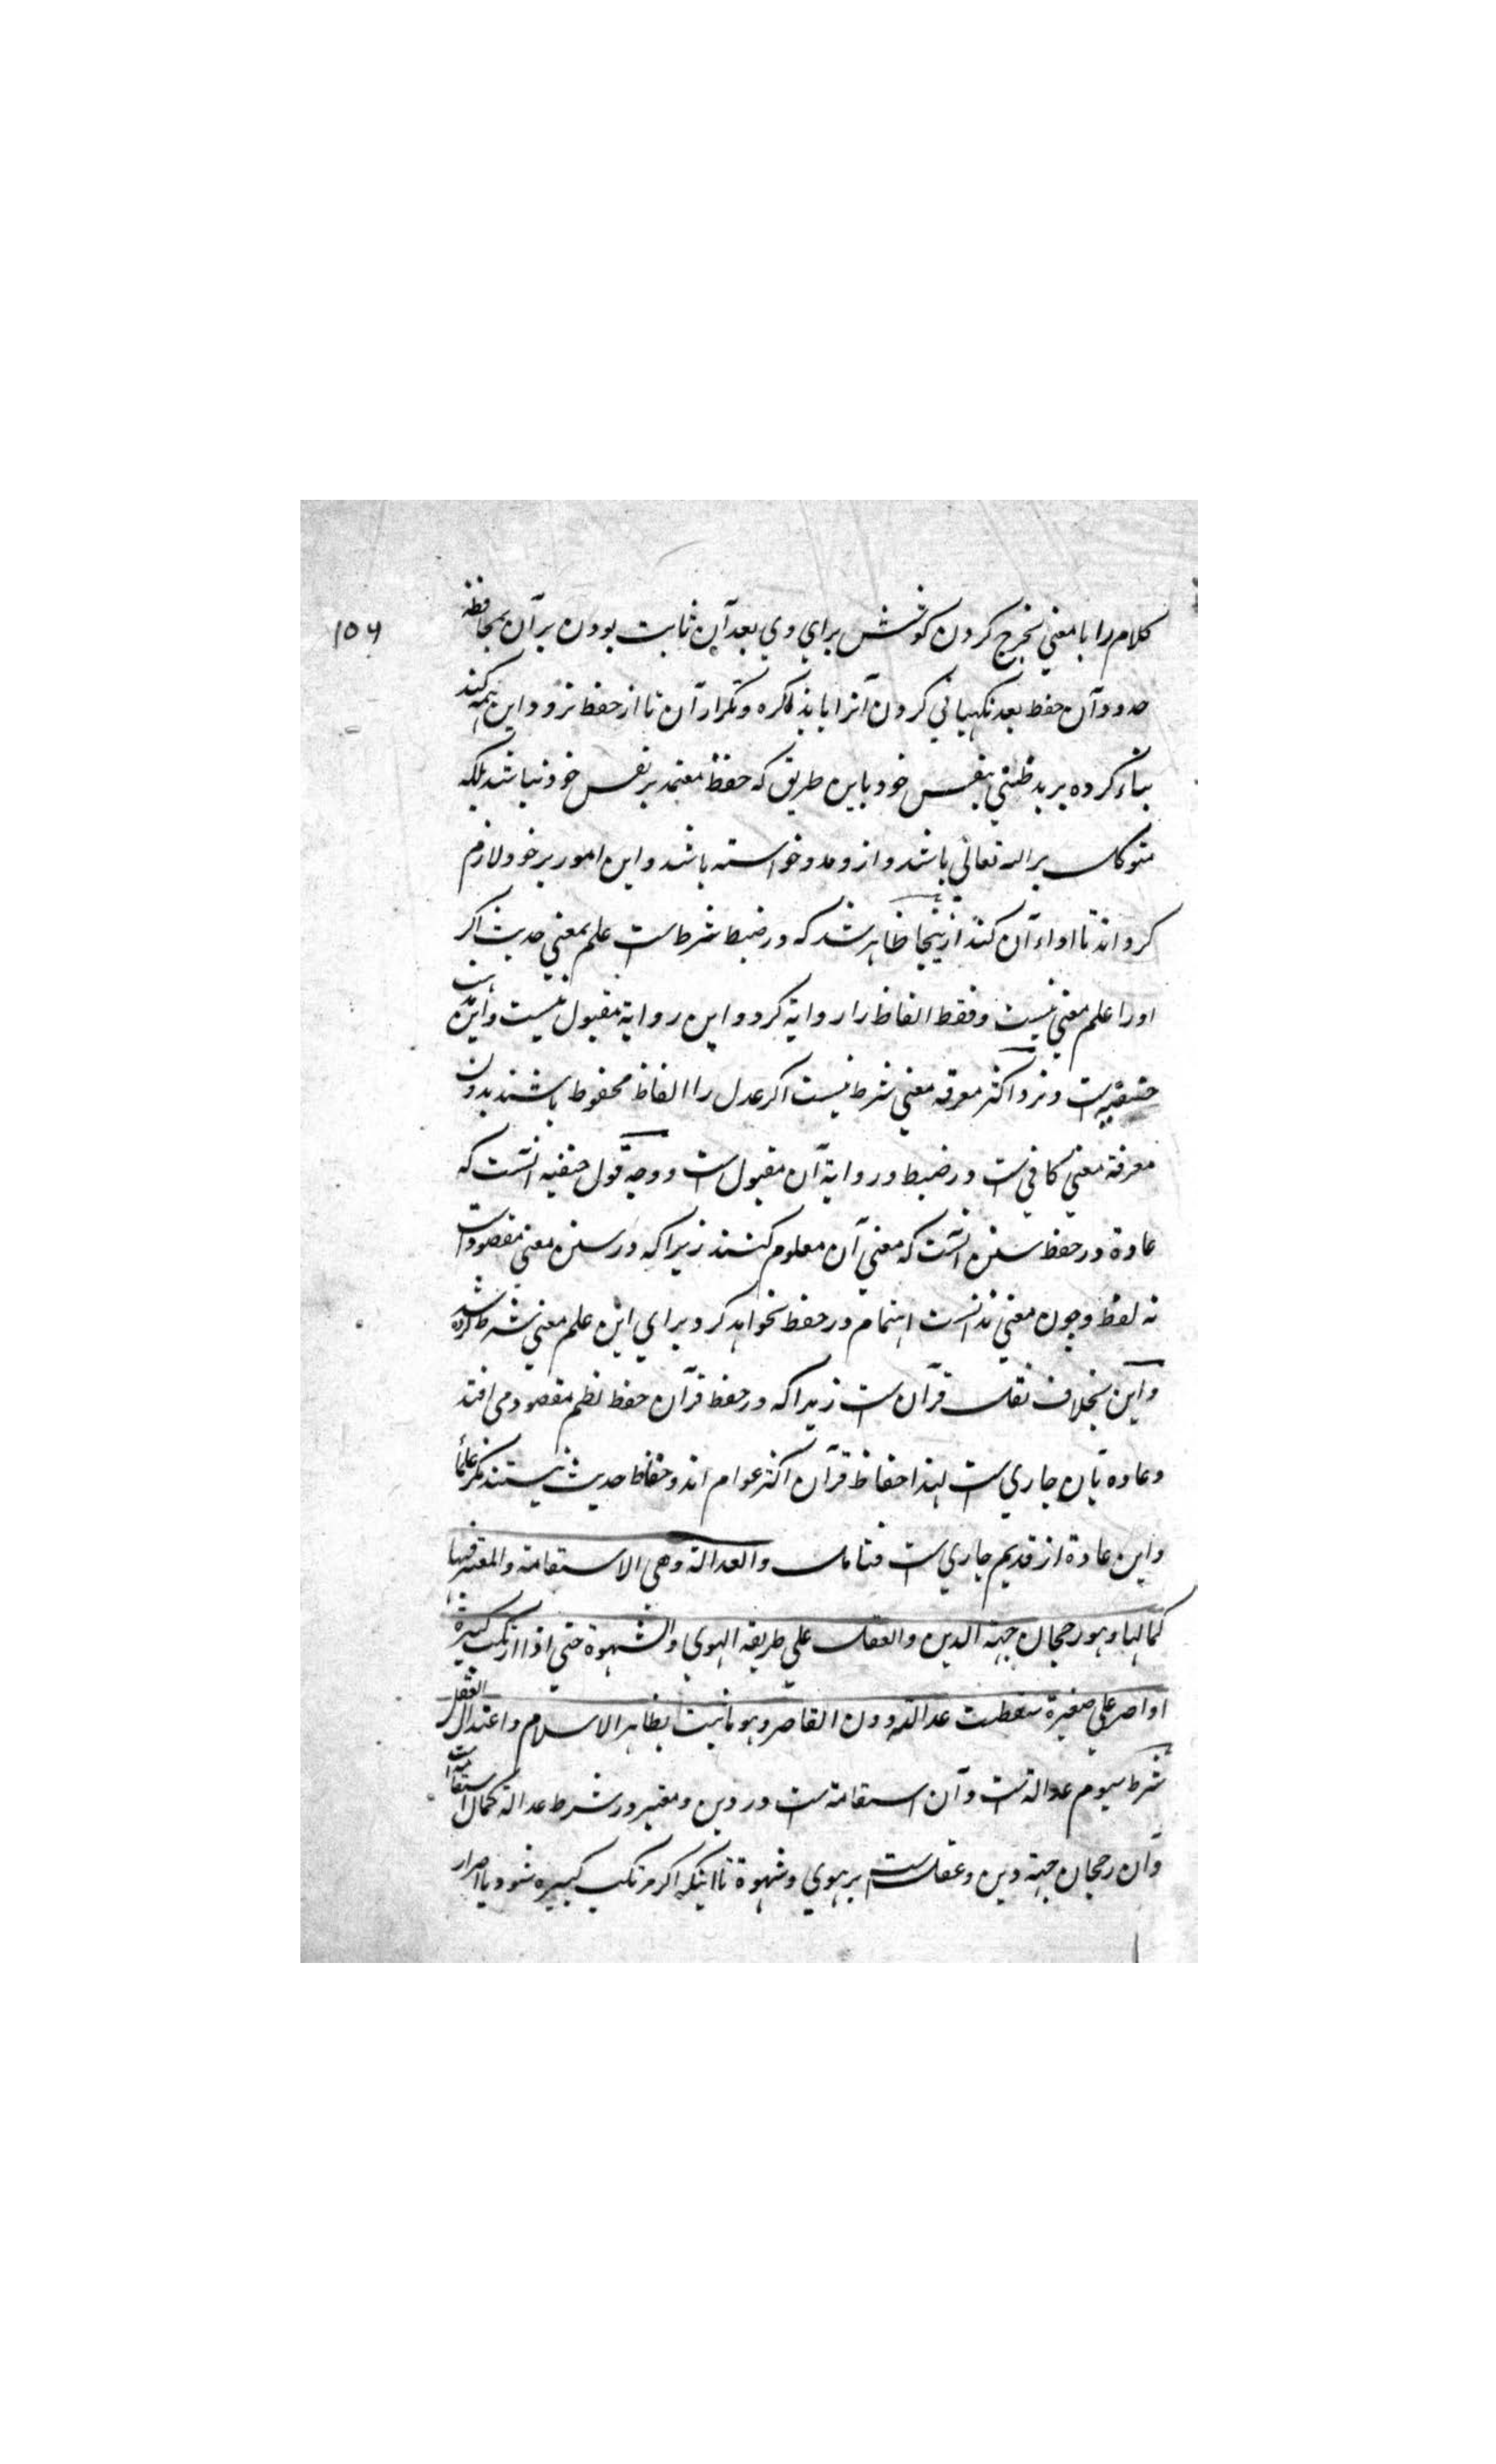 ۱۵۶
کلام را با معني بخرج کردن کوشش براي وي بعد آن ثابت بودن بر آن بمحافظة
حدود آن حفظ بعد نکهباني کردن آنرا با بذاکره و تکرار آن تا از حفظ نرود و این همه کند
بناء کرده بر بدظني بنفس خود باین طریق که حفظ معتمد بر نفس خود نباشد بلکه
متوکل بر الله تعالي باشد و ازو مدد خواسته باشد و این امور بر خود لازم
کرداند تا اداء آن کند ازینجا ظاهر شد که در ضبط شرط است علم بمعني حدیث اکر
اورا علم معني نیست و فقط الفاظ را روایة کرد و این روایة مقبول نیست و این مذهب
حنفیه است و نزد اکثر معرفه معني شرط نیست اکر عدل را الفاظ محفوظ باشند بدون
معرفة معني کافي است در ضبط و روایة آن مقبول است و وجه قول حنفیه آنست که
عادة در حفظ سنن آنست که معني آن معلوم کنند زیرا که در سنن معني مقصود است
نه لفظ و چون معني ندانست اهتمام در حفظ نخواهد کرد براي این علم معني شرط کرده شد
و این بخلاف نقل قرآن است زیرا که در حفظ قرآن حفظ نظم مقصود مي افتد
و عاده بآن جاري است لهذا حفاظ قرآن اکثر عوام اند و حفاظ حدیث نیستند مکر علماء
و این عادة از قدیم جاري است فتامل والعدالة وهي الاستقامة والمعتبر فیها
کمالها وهو رجحان جهة الدین والعقل علي طریقه الهوي والشهوة حتي اذا ارتکب کبیرة
او اصر علي صغیرة سقطت عدالته دون القاصر وهو ما ثبت بظاهر الاسلام واعتدال العقل
شرط سیوم عدالة است و آن استقامة است در دین و معتبر در شرط عدالة کمال استقامة است
و آن رجحان جهة دین و عقل است بر هوي و شهوة تا اینکه اکر مرتکب کبیره شود یا اصرار